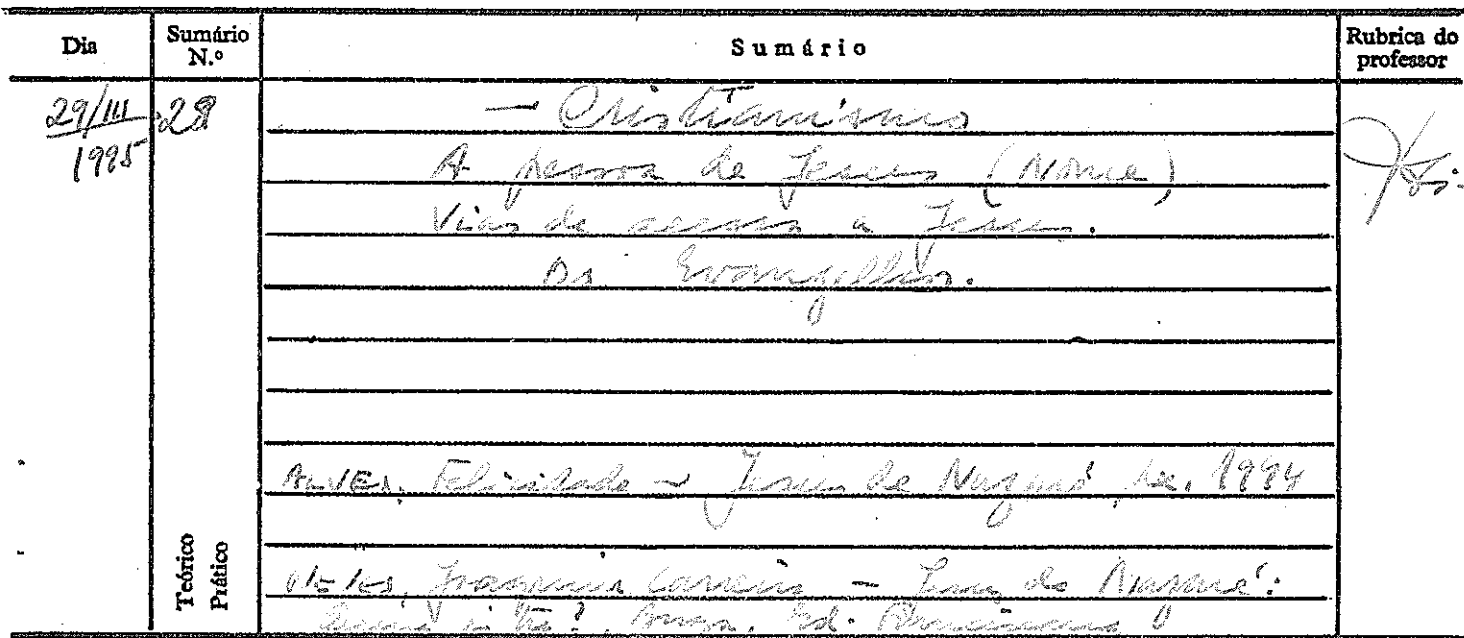 Dia
Sumário N.º
Sumário
Rubrica do professor
29/III 1995
28
— Cristianismo
A pessoa de Jesus (Nome)
Vias de acesso a Jesus.
Os Evangelhos.
ALVES, Felicidade — Jesus de Nazaré, 1994
Teórico
Prático
Carreira — Jesus de Nazaré:
Braga, Ed. Franciscana